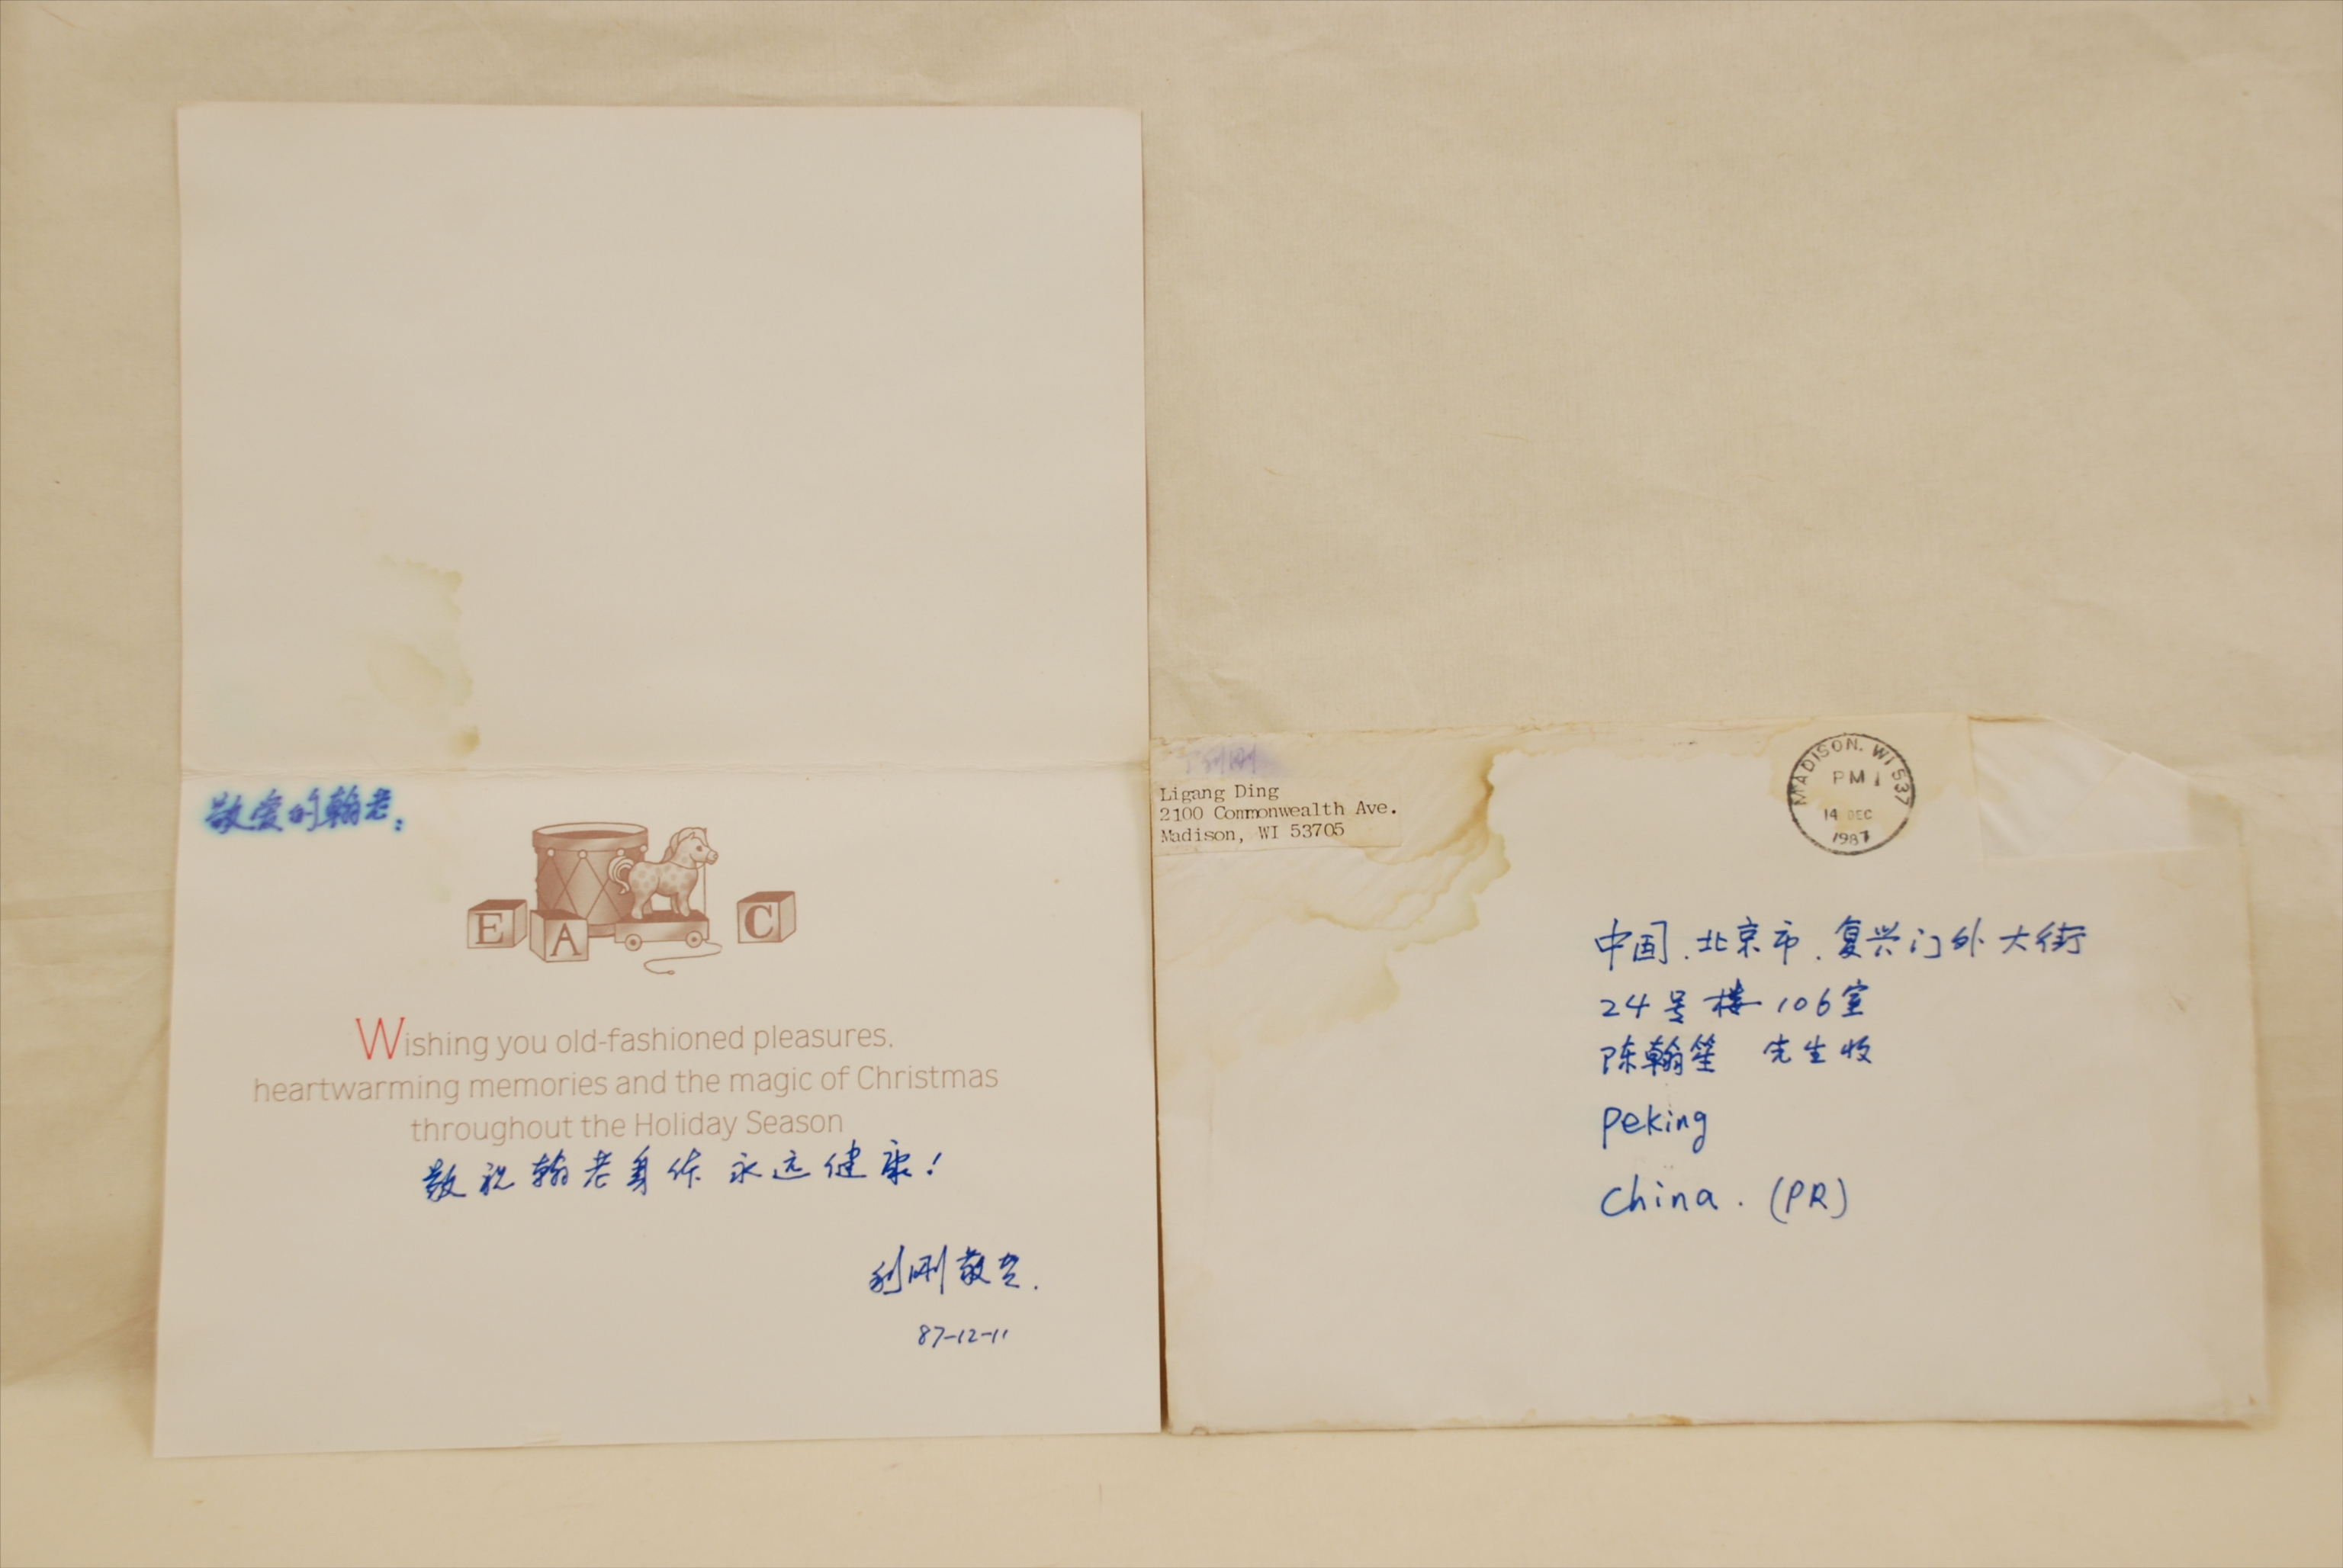 敬爱的翰老：
E A C
Wishing you old-fashioned pleasures,
heartwarming memories and the magic of Christmas
throughout the Holiday Season
敬祝翰老身体永远健康！
利刚敬上.
87-12-11
利刚
Ligang Ding
2100 Commonwealth Ave.
Madison, WI 53705
MADISON, WI 537
PM
14 DEC
1987
中国.北京市.复兴门外大街
24号楼106室
陈翰笙 先生收
Peking
China. (PR)